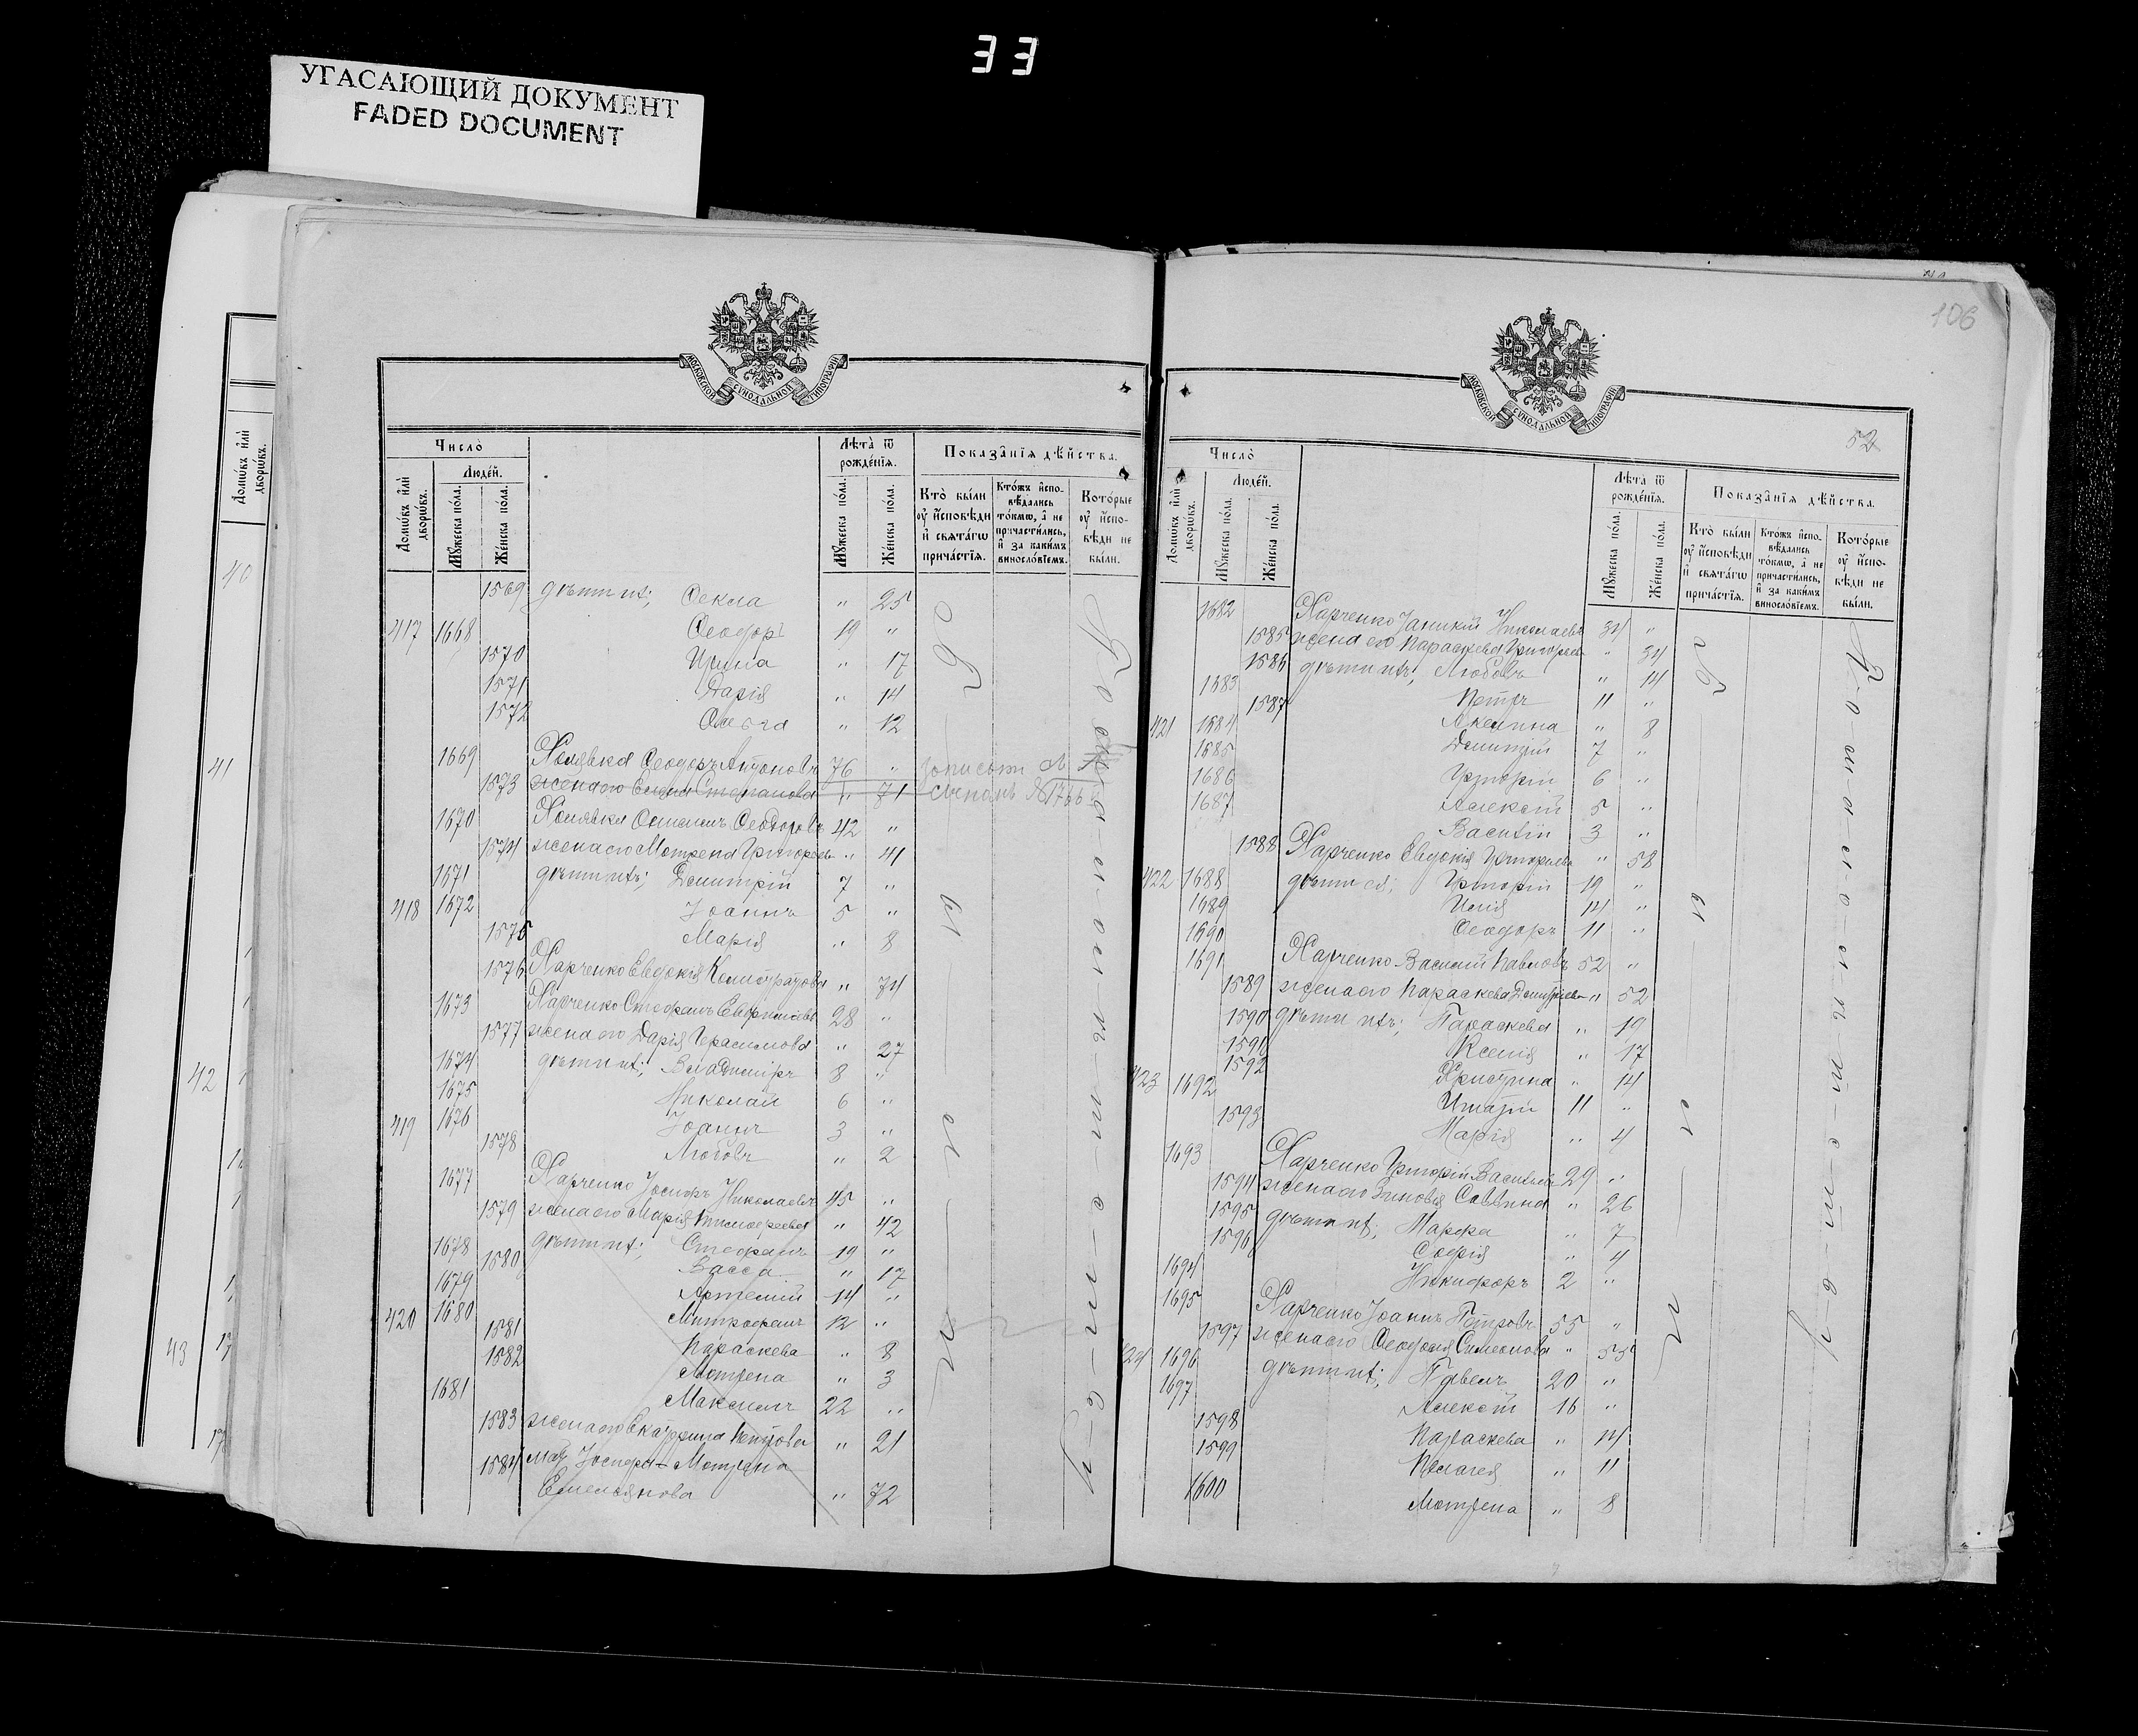 33
УГАСАЮЩИЙ ДОКУМЕНТ
FADED DOCUMENT
МОСКОВСКОЙ СѴНОДАЛЬНОЙ ТИПОГРАФІИ
Число̀
Домѡ́въ и҆лѝ дворѡ́въ.
Люде́й.
Мꙋ́жеска по́ла.
Же́нска по́ла.
Лѣ́та ѿ рожде́нїѧ.
Мꙋ́жеска по́ла.
Же́нска по́ла.
Показа̂нїѧ дѣ́йства.
Кто̀ бы́ли ᲂу҆ и҆сповѣ́ди и҆ свѧта́гѡ прича́стїѧ.
Кто́жъ и҆спо- вѣ́дались то́кмѡ, а҆ не причасти́лись, и҆ за каки́мъ винословїемъ.
Кото́рые ᲂу҆ и҆спо- вѣ́ди не бы́ли.
1569 дѣти ихъ; Ѳекла " 25
417 1668 Ѳеодоръ 19 "
1570 Ирина " 17
1571 Дарія " 14
1572 Ольга " 12
1669 Холявка Ѳеодоръ Антоновъ 76 "
1573 жена его Стефанова " 71
1670 Холявка Ѳеодоровъ 42 "
1574 жена его Мотрена Григорьева " 41
1671 дѣти ихъ; Димитрій 7 "
418 1672 Іоаннъ 5 "
1575 Марія " 8
1576 Харченко Евдокія " 74
1673 Харченко Стефанъ Евфиміевъ 28 "
1577 жена его Дарія Герасимова " 27
1674 дѣти ихъ; Владиміръ 8 "
1675 Николай 6 "
419 1676 Іоаннъ 3 "
1578 Любовь " 2
1677 Харченко Іосифъ Николаевъ 45 "
1579 жена его Марія Тимоѳеева " 42
1678 дѣти ихъ; Стефанъ 19 "
1580 Васса " 17
1679 Артемій 14 "
420 1680 Митрофанъ 12 "
1581 Параскева " 8
1582 Мотрена " 3
1681 Максимъ 22 "
1583 жена его Екатерина Петрова " 21
1584 мать Іосифа - Мотрена
Емельянова " 72
106
52
МОСКОВСКОЙ СѴНОДАЛЬНОЙ ТИПОГРАФІИ
Число̀
Домѡ́въ и҆лѝ дворѡ́въ.
Люде́й.
Мꙋ́жеска по́ла.
Же́нска по́ла.
Лѣ́та ѿ рожде́нїѧ.
Мꙋ́жеска по́ла.
Же́нска по́ла.
Показа̂нїѧ дѣ́йства.
Кто̀ бы́ли ᲂу҆ и҆сповѣ́ди и҆ свѧта́гѡ прича́стїѧ.
Кто́жъ и҆спо- вѣ́дались то́кмѡ, а҆ не причасти́лись, и҆ за каки́мъ винословїемъ.
Кото́рые ᲂу҆ и҆спо- вѣ́ди не бы́ли.
1682 Харченко Николаевъ 34 "
1585 жена его Параскева Григорьева " 34
1586 дѣти ихъ; Любовь " 14
1683 Петръ 11 "
1587 Акилина " 8
421 1684 Димитрій 7 "
1685 Григорій 6 "
1686 Алексій 5 "
1687 Василій 3 "
1588 Харченко Евдокія Григорьева " 58
422 1688 дѣти ея; Григорій 19 "
1689 Илія 14 "
1690 Ѳеодоръ 11 "
1691 Харченко Василій Павловъ 52 "
1589 жена его Параскева Димитріева " 52
1590 дѣти ихъ; Параскева " 19
1591 Ксенія " 17
1592 Христина " 14
423 1692 Игнатій 11 "
1593 Марія " 4
1693 Харченко Григорій Васильевъ 29 "
1594 жена его Зиновія Саввина " 26
1595 дѣти ихъ; Марфа " 7
1596 Софія " 4
1694 Никифоръ 2 "
1695 Харченко Іоаннъ Петровъ 55 "
1597 жена его Ѳеодосія Симеонова " 55
424 1696 дѣти ихъ; Павелъ 20 "
1697 Алексій 16 "
1598 Параскева " 14
1599 Пелагея " 11
1600 Мотрена " 8